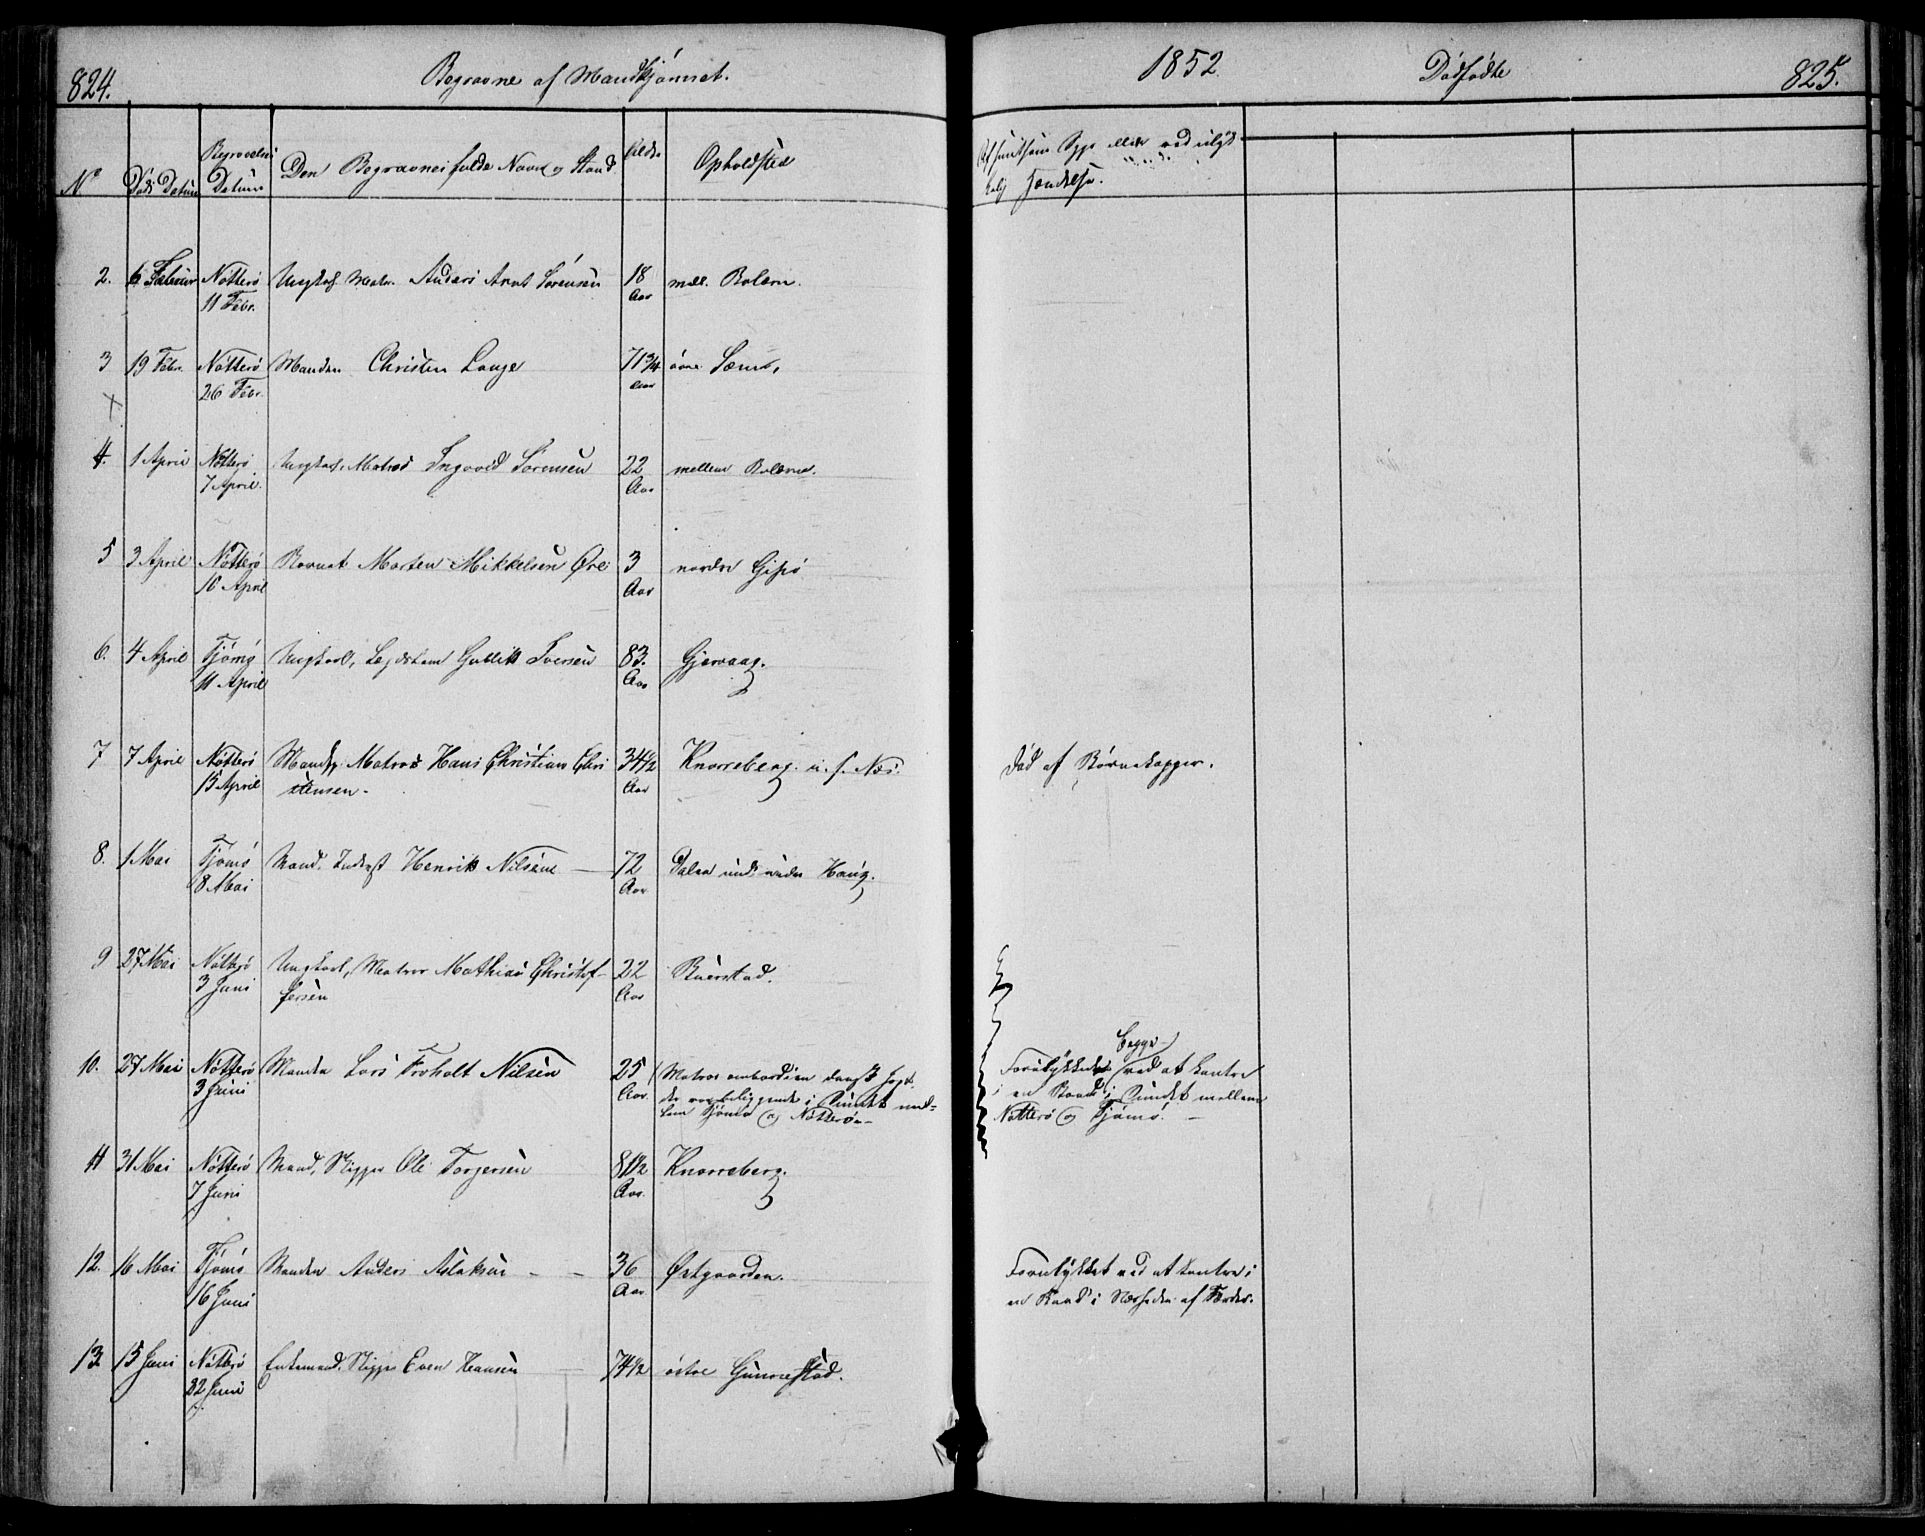 824.
Begravne af Mandkjønnet.
No
Døds Datum
Begravelses Datum
Den Begravnes fulde Navn og Stand
Alder
Opholdsted
2. 6 Februar Nøtterø Ungkarl Matr. Anders Arnt Sørensen 18 mell. Bolærn.
11 Febr. Aar
3 19 Febr. Nøtterø Manden Christen Lange 71 3/4 øvre Sæm,
26 Febr. Aar
4. 1 April Nøtterø Ungkarl. Matros Ingvold Sørensen 22 mellem Bolærne.
7 April. Aar
5 3 April Nøtterø Barnet Morten Mikkelsen Øre 3 nordre Gipø
10 April Aar
6. 4 April Tjømø Ungkarl, Legdslem Gullik Iversen 83. Gjervaag.
11 April Aar
7 7 April Nøtterø Mand, Matros Hans Christian Chri 34 1/2 Knarreberg u. f. Næs.
15 April stensen. Aar
8. 1 Mai Tjømø Mand, Inderst Henrik Nilsen 72 Dalen und. Haug.
8 Mai Aar
9 27 Mai Nøtterø Ungkarl, Matros Mathias Christof- 22 Buerstad.
3 Juni fersen Aar
10. 27 Mai Nøtterø Manden Lars Froholt Nilsen 25 (Matros ombord i en dansk Jagt
3 Juni Aar. der var beliggende i Sundet mel=
lem Tjømø og Nøtterø.
11 31 Mai Nøtterø Mand, Skipper Ole Torgersen 81 1/2 Knarreberg.
7 Juni Aar.
12. 16 Mai Tjømø Manden Anders Aslaksen 36 Østgaarden.
16 Juni Aar
13. 15 Juni Nøtterø Enkemand, Skipper Even Hansen 74 1/2 østre Gunnestad.
22 Juni
1852.
Dødfødte
825.
Af smitsom Syge eller ved ulyk-
kelig Hændelse.
Død af Børnekopper.
Begge
Forulykkede ved at kantre
i en Baad i Sundet mellem
Nøtterø og Tjømø.
Forulykket ved at kantre i
en Baad i Nærheden af Færder.